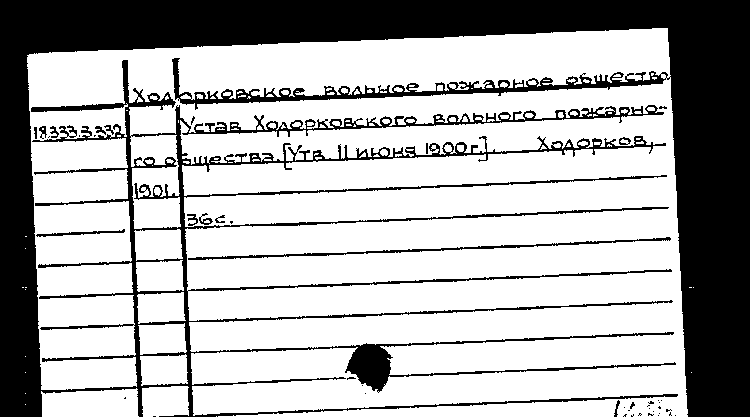 Ходорковское вольное пожарное общество
18.333.3.332 Устав Ходорковского вольного пожарно-
го общества. [Утв. 11 июня 1900г.]. Ходорков,
1901.
36с.